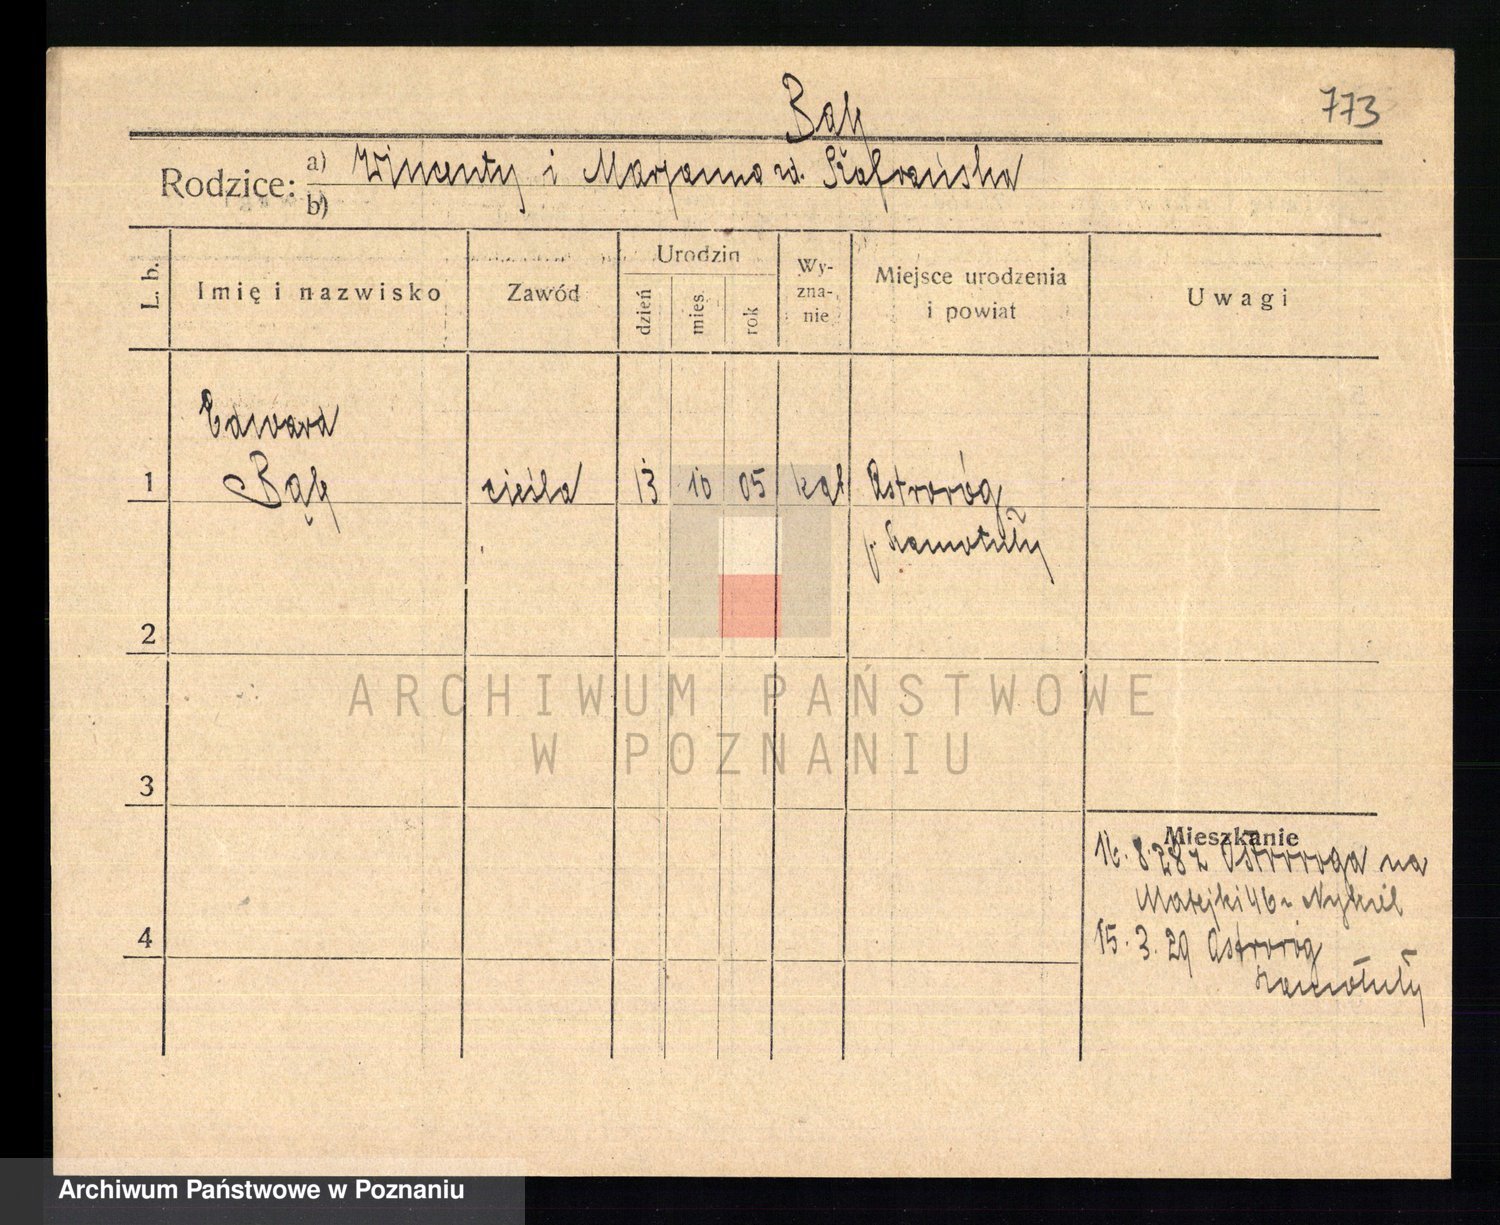 773
Bąk
Rodzice: a) Wincenty i Marjanna zd. Szafrańska
b)
L. b.
Imię i nazwisko
Zawód
Urodzin
dzień
mies.
rok
Wy-
zna-
nie
Miejsce urodzenia
i powiat
Uwagi
Edward
1 Bąk cieśla 13 10 05 kat Ostroróg
p. Szamotuły
2
ARCHIWUM PAŃSTWOWE
W POZNANIU
3
Mieszkanie
16. 8. 28 z Ostroroga na
Matejki 46
4
15. 3. 29 Ostroróg
Szamotuły
Archiwum Państwowe w Poznaniu